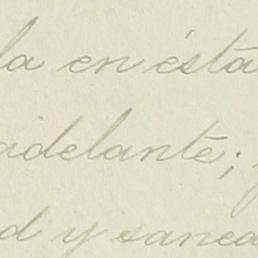 la en ésta
adelante;
d y sanea